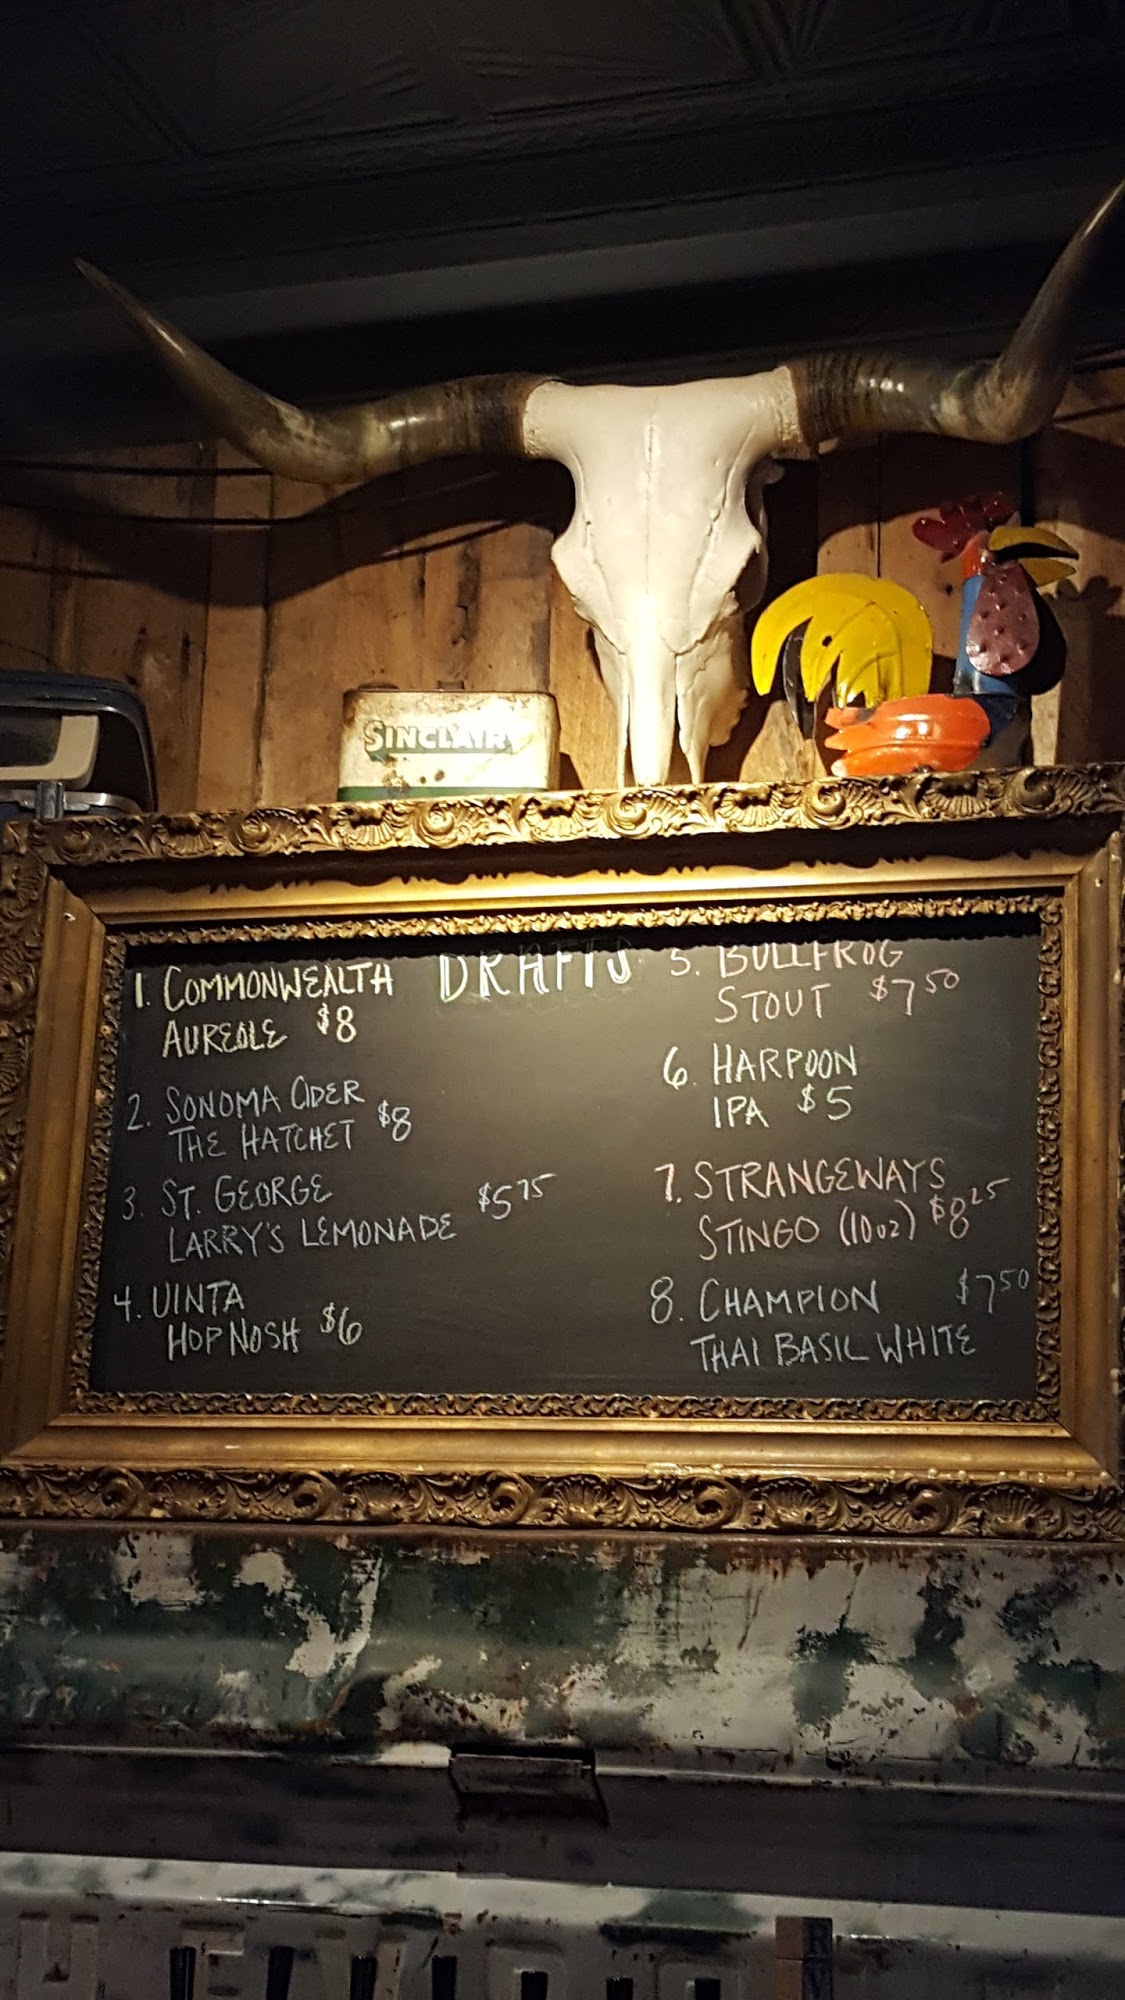 SINCLAIR
DRAFTS
1. COMMONWEALTH
AUREOLE $8
2. SONOMA CIDER
THE HATCHET $8
3. ST. GEORGE
LARRY'S LEMONADE $5 75
4. UINTA
HOP NOSH $6
5. BULLFROG
STOUT $7 50
6. HARPOON
IPA $5
7. STRANGEWAYS
STINGO (10oz) $8 25
8. CHAMPION $7 50
THAI BASIL WHITE